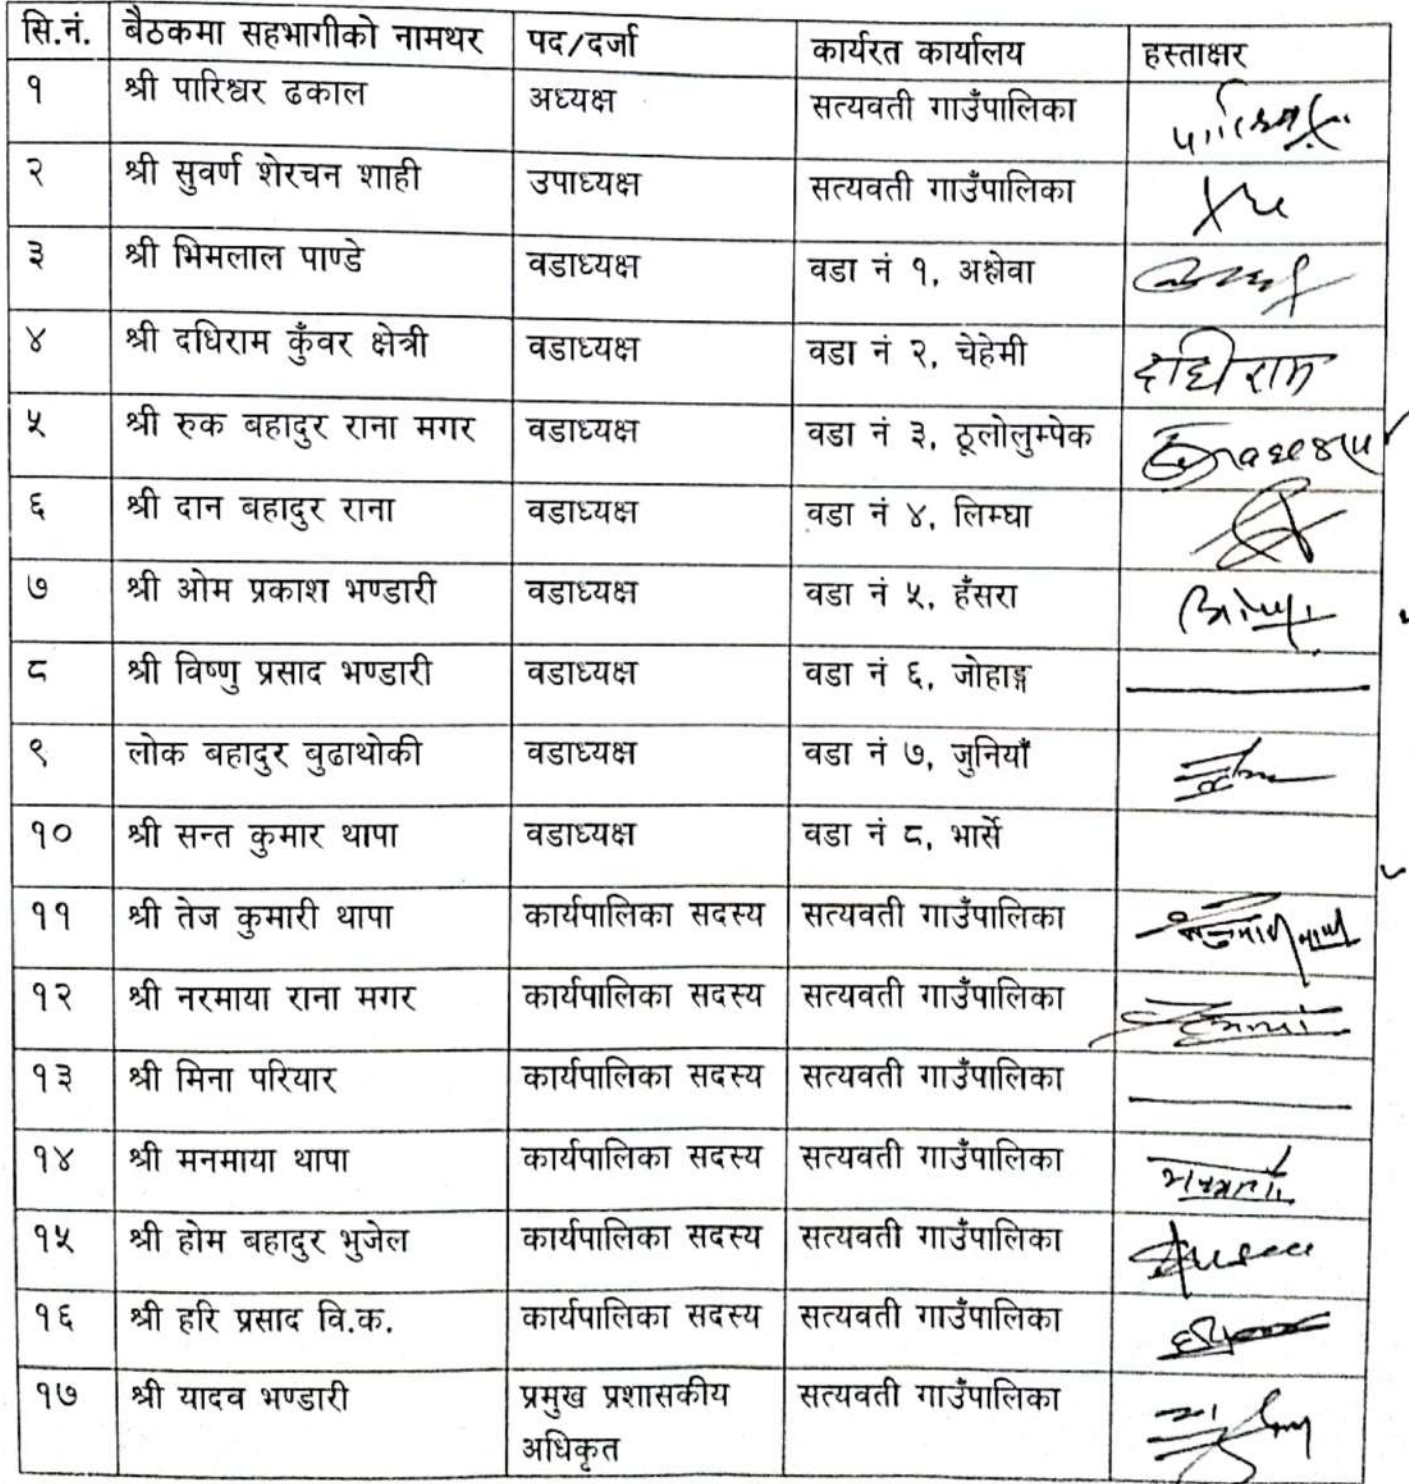 सि.नं. बैठकमा सहभागीको नामथर पद/दर्जा कार्यरत कार्यालय हस्ताक्षर
१ श्री पारिश्वर ढकाल अध्यक्ष सत्यवती गाउँपालिका
२ श्री सुवर्ण शेरचन शाही उपाध्यक्ष सत्यवती गाउँपालिका
३ श्री भिमलाल पाण्डे वडाध्यक्ष वडा नं १, अश्लेवा
४ श्री दधिराम कुँवर क्षेत्री वडाध्यक्ष वडा नं २, चेहेमी दधिराम
५ श्री रुक बहादुर राना मगर वडाध्यक्ष वडा नं ३, ठूलोलुम्पेक
६ श्री दान बहादुर राना वडाध्यक्ष वडा नं ४, लिम्घा
७ श्री ओम प्रकाश भण्डारी वडाध्यक्ष वडा नं ५, हँसरा
८ श्री विष्णु प्रसाद भण्डारी वडाध्यक्ष वडा नं ६, जोहाङ्ग
९ लोक बहादुर बुढाथोकी वडाध्यक्ष वडा नं ७, जुनियाँ
१० श्री सन्त कुमार थापा वडाध्यक्ष वडा नं ८, भार्से
११ श्री तेज कुमारी थापा कार्यपालिका सदस्य सत्यवती गाउँपालिका
१२ श्री नरमाया राना मगर कार्यपालिका सदस्य सत्यवती गाउँपालिका
१३ श्री मिना परियार कार्यपालिका सदस्य सत्यवती गाउँपालिका
१४ श्री मनमाया थापा कार्यपालिका सदस्य सत्यवती गाउँपालिका
१५ श्री होम बहादुर भुजेल कार्यपालिका सदस्य सत्यवती गाउँपालिका
१६ श्री हरि प्रसाद वि.क. कार्यपालिका सदस्य सत्यवती गाउँपालिका
१७ श्री यादव भण्डारी प्रमुख प्रशासकीय सत्यवती गाउँपालिका
अधिकृत